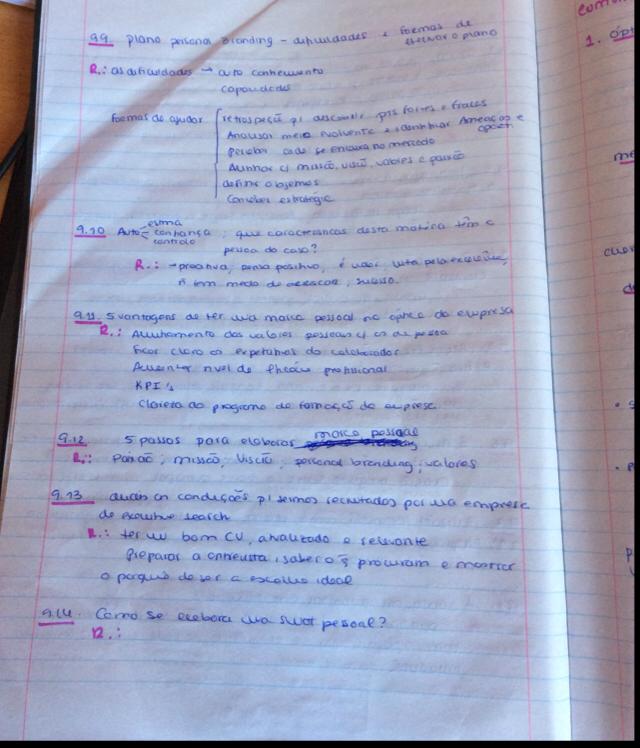 9.9. plano personal branding - dificuldades e formas de
elaborar o plano
R.: as dificuldades → auto conhecimento
capacidades
Formas de ajudar
retrospeçã p/ descobrir pts fortes e fracos
Analisar meio envolvente e identificar Ameaças e
oport.
perceber onde se encaixa no mercado
Alinhar c/ missão, visão, valores e paixão
definir objetivos
Conceber estratégia
9.10 Auto
estima
confiança
controlo
; que características desta matéria têm a
pessoa do caso?
R.: - proativa, pensa positivo, é líder, luta pela excelência,
ñ tem medo de arriscar, sucesso.
9.11. 5 vantagens de ter ua marca pessoal na óptica da empresa
R.: Alinhamento dos valores pessoais c/ os da
ficar claro as expetativas do colaborador
Aumentar nível de profissional
KPI's
Clareza do programa de formaçã da empresa.
9.12 5 passos para elaborar marca pessoal
R.: Paixão, missão, Visão, personal branding, valores
9.13 quais as condições p/ sermos recrutados por ua empresa
de executive search
R.: ter um bom CV, atualizado e relevante
Preparar a entrevista, saber o q̃ procuram e mostrar
o porquê de ser a escolha ideal
9.14. Como se elabora ua swot pessoal?
R.:
1.